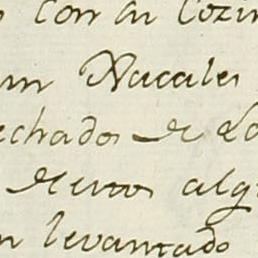 con su Cozin
un Xacales
echados de Lo
de otros alg
n levantado